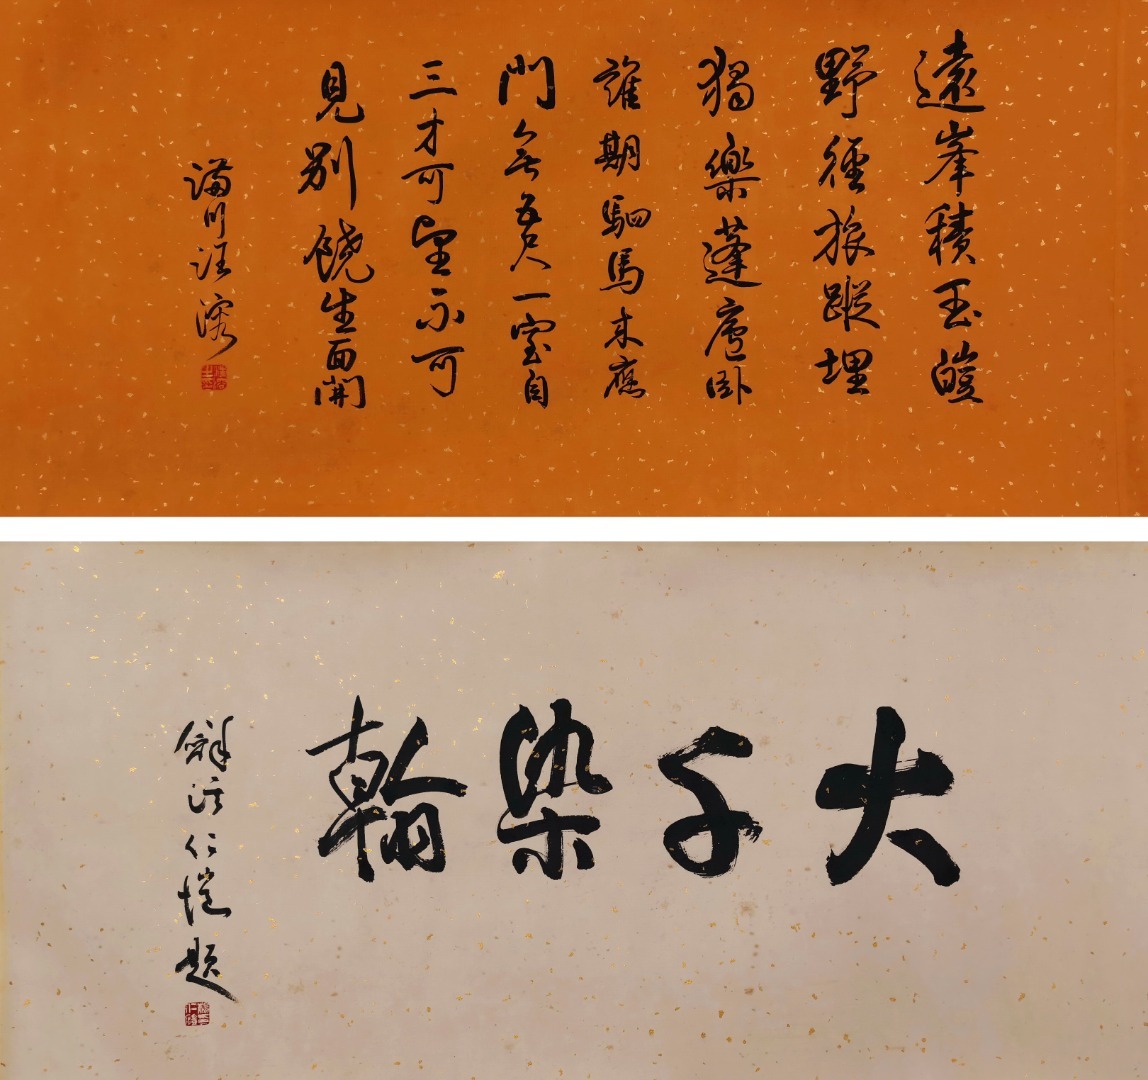 遠峯積玉皚
野徑旅蹤埋
獨樂蓬廬臥
誰期駟馬來應
門無五尺一室自
三才可望不可
見別饒生面開
滿川汪溶
大千染翰
龢溪仁愷題